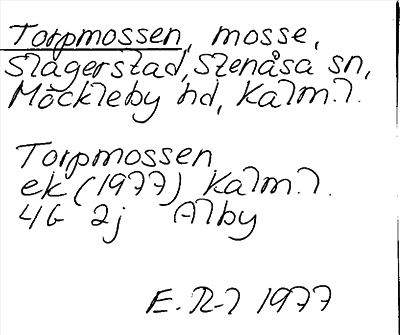 Torpmossen, mosse,
Slagerstad, Stenåsa sn,
Möckleby hd, Kalm.l.
Torpmossen
ek (1977) Kalm.l.
4G 2j Alby
E.R-l 1977